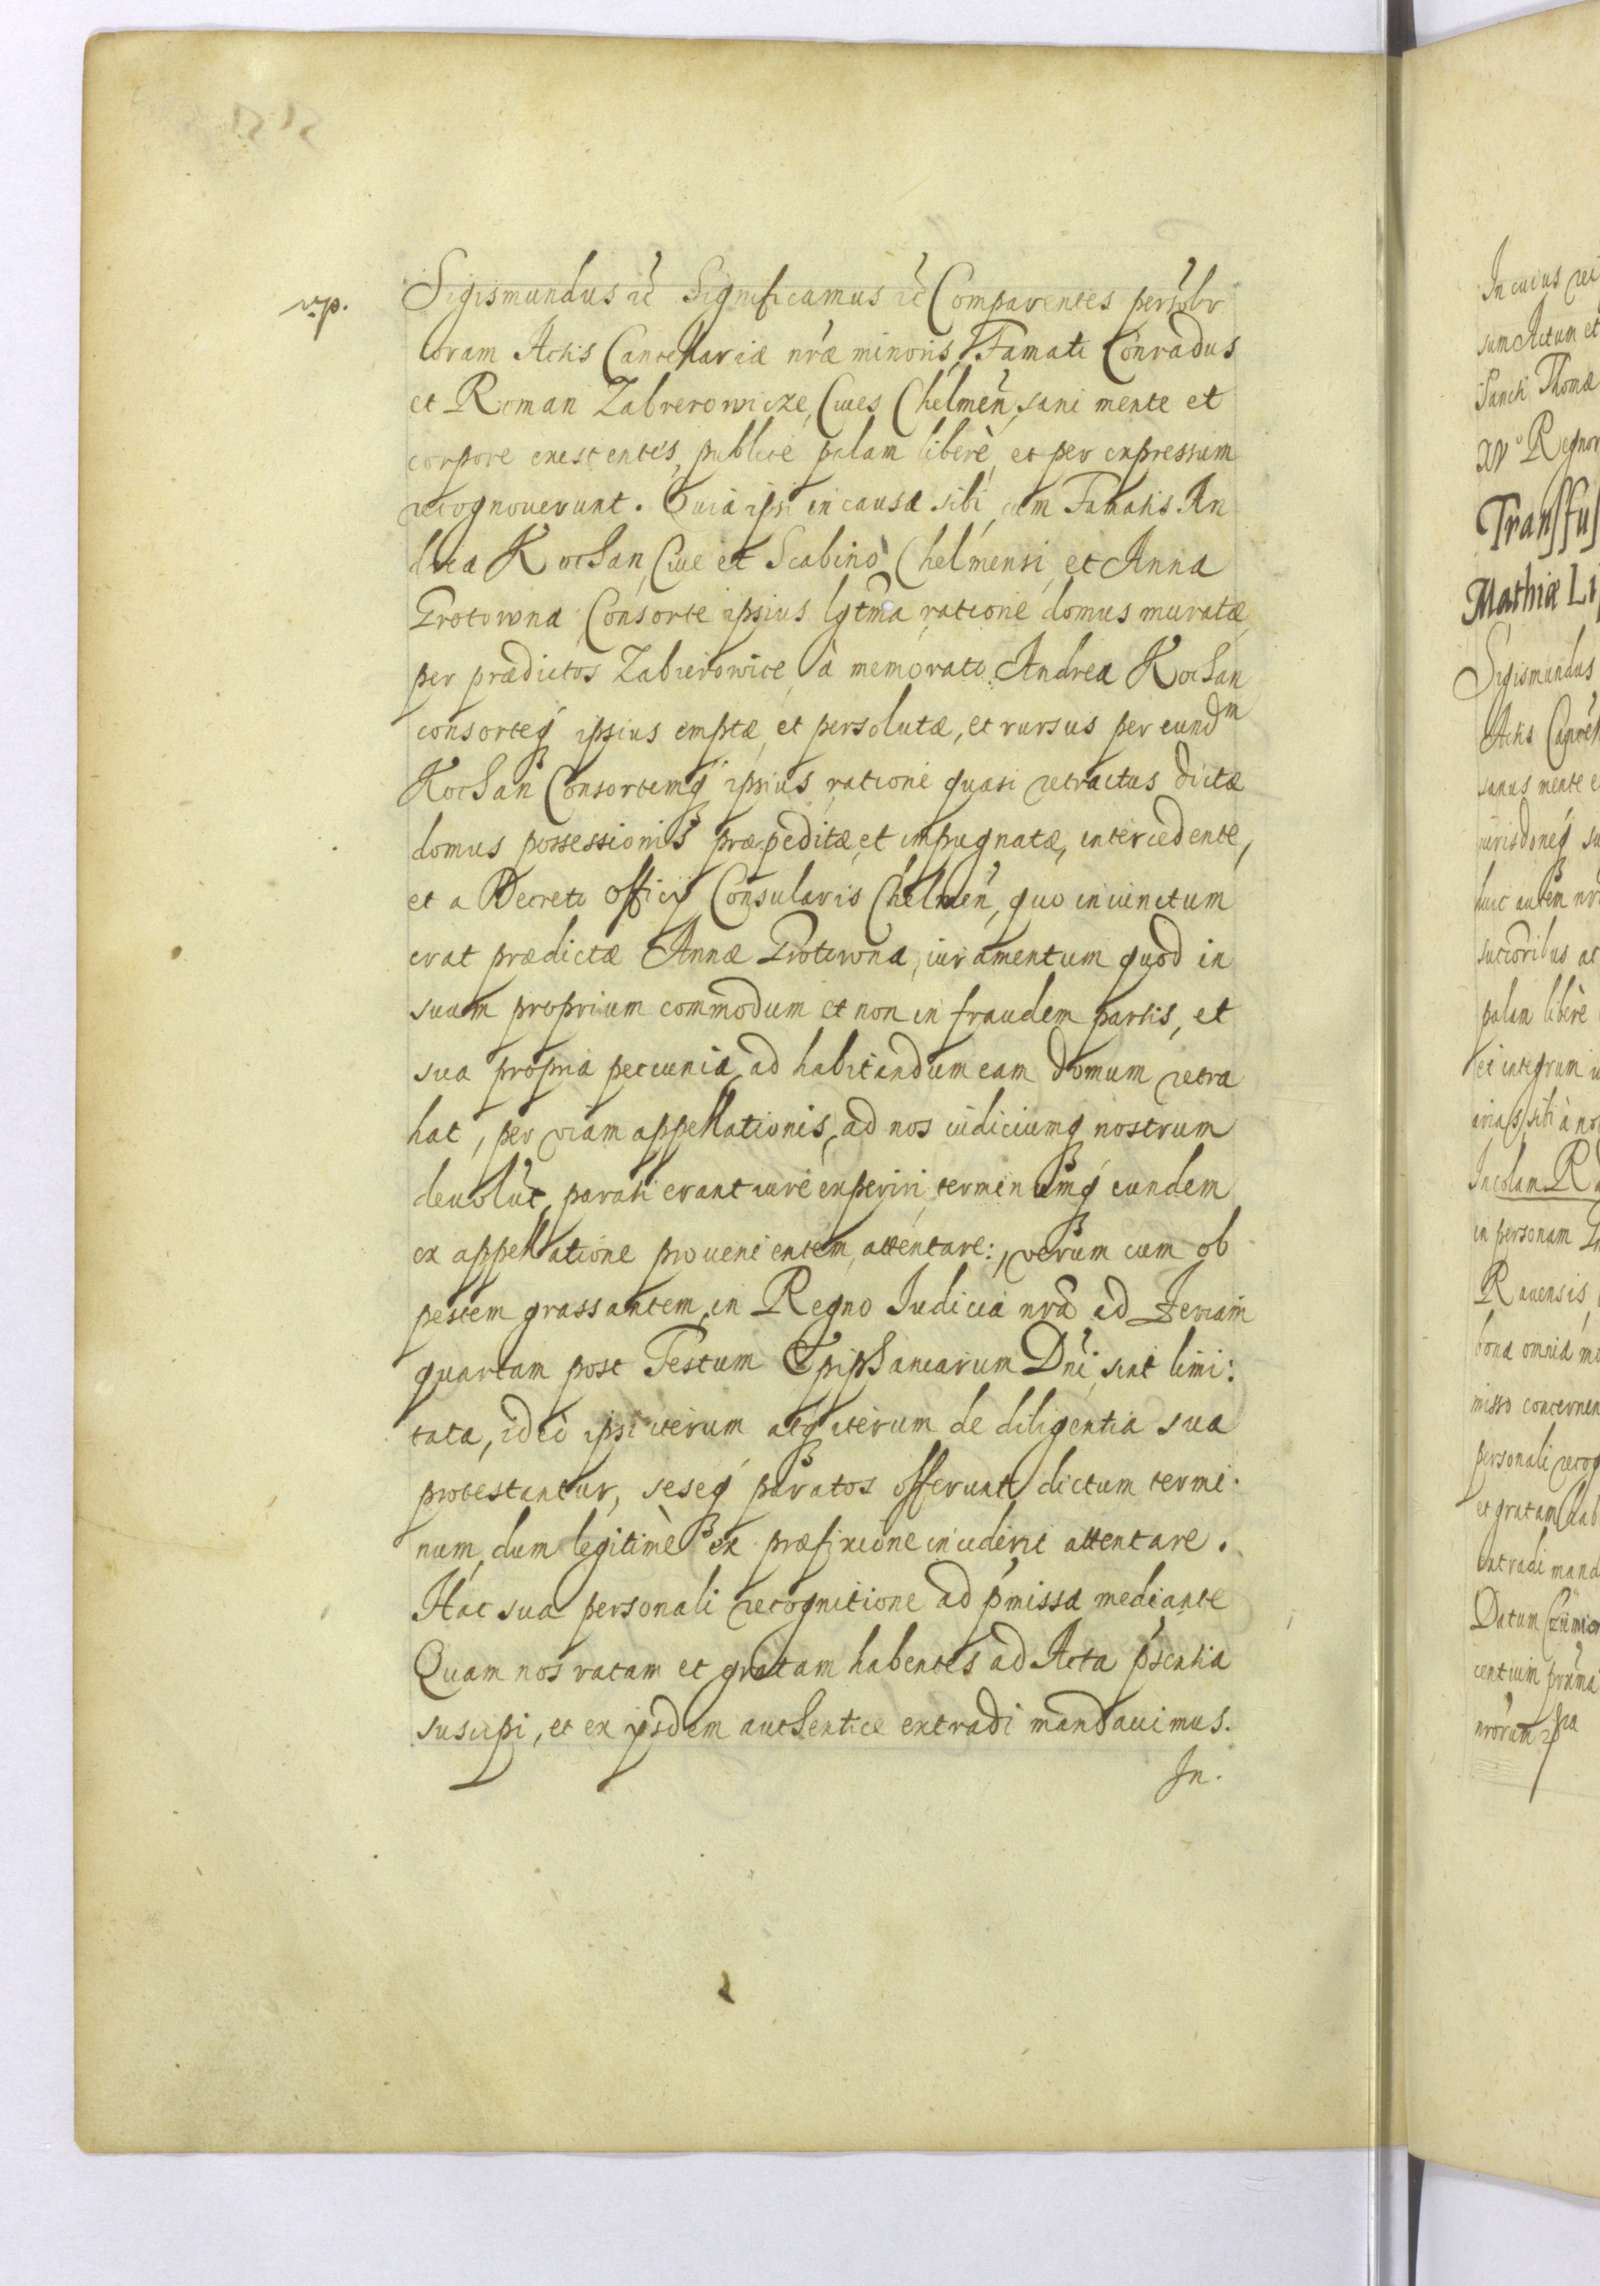 v. p.
Sigismundus etc̄ Significamus etc̄ Comparentes persolr
coram Actis Cancellariæ nr̄æ minoris, Famati Conradus
et Roman Zabrerowicze, Ciues Chelmeñ, sani mente et
corpore existentes, publicè palam liberè, et per expressum
recognouerunt. Quia ipsi in causa sibi, cum Famatis An
drea Kochan, Ciue et Scabino Chelmensi, et Anna
Protowna Consorte ipsius lgtm̄a, ratione domus muratæ,
per prædictos Zabierowice, à memorato Andrea Kochan
consorteq ipsius emptæ, et persolutæ, et rursus per eundm
Kochan Consortemq ipsius, ratione quasi retractus dictæ
domus possessionis præpeditæ, et impugnatæ, intercedente,
et a Decreto officÿ Consularis Chelmeñ, quo iniunctum
erat prædictæ Annæ Protowna, iuramentum quod in
suum proprium commodum et non in fraudem partis, et
sua propria pecunia, ad habitandum eam domum retra
hat, per viam appellationis, ad nos iudiciumq nostrum
deuolut̄, parati erant iure experiri, terminumq eundem
ex appellatione prouenientem, attentare:, verum cum ob
pestem grassantem, in Regno Iudicia nrā ad Feriam
quartam post Festum Epiphaniarum Dn̄i, sint limi:
tata, ideò ipsi iterum atq iterum de diligentia sua
protestantur, seseq paratos offerunt dictum termi.
num, dum legitimè ex præfixione inciderit attentare.
Hac sua personali recognitione ad p̄missa mediante
Quam nos ratam et gratam habentes ad Acta p̄sentia
suscipi, et ex ipsdem authentice extradi mandauimus.
In.
In cuius rei
sum Actum et
Sancti Thomæ
XVo Regnor
Transfus
Mathiæ Li
Sigismundus
Actis Cancell
sanus mente e
iurisdoneq su
huic autem nr
succoribus ac
palam liberè
et integrum
sibi à no
Incolam R
in personam
Rauensis,
bona omnia
misso concernen
personali recog
et gratam hab
extradi mand
Datum
centium
nrorum